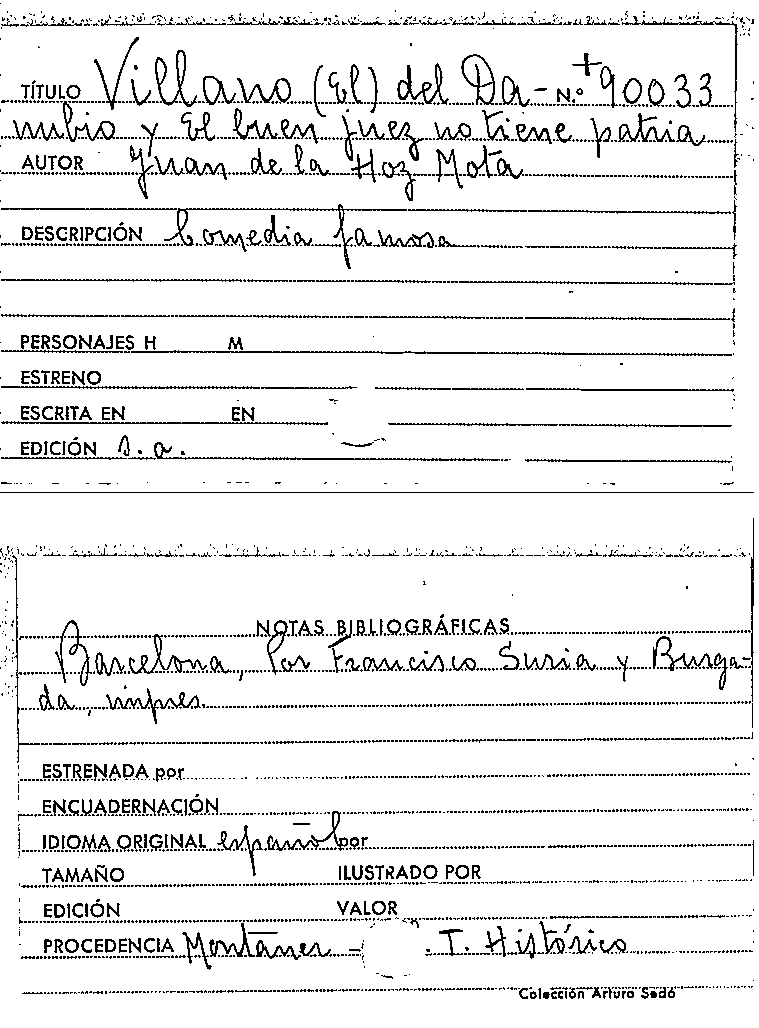 TÍTULO Villano (El) del Da- N.º +90033
nubio y El buen juez no tiene patria
AUTOR Juan de la Hoz Mota
DESCRIPCIÓN Comedia famosa
PERSONAJES H M
ESTRENO
ESCRITA EN EN
EDICIÓN s.a.
NOTAS BIBLIOGRÁFICAS
Barcelona, Por Francisco Suria y Burga-
da, impres.
ESTRENADA por
ENCUADERNACIÓN
IDIOMA ORIGINAL español por
TAMAÑO ILUSTRADO POR
EDICIÓN VALOR
PROCEDENCIA Montaner - . T. Histórico
Colección Arturo Sedó